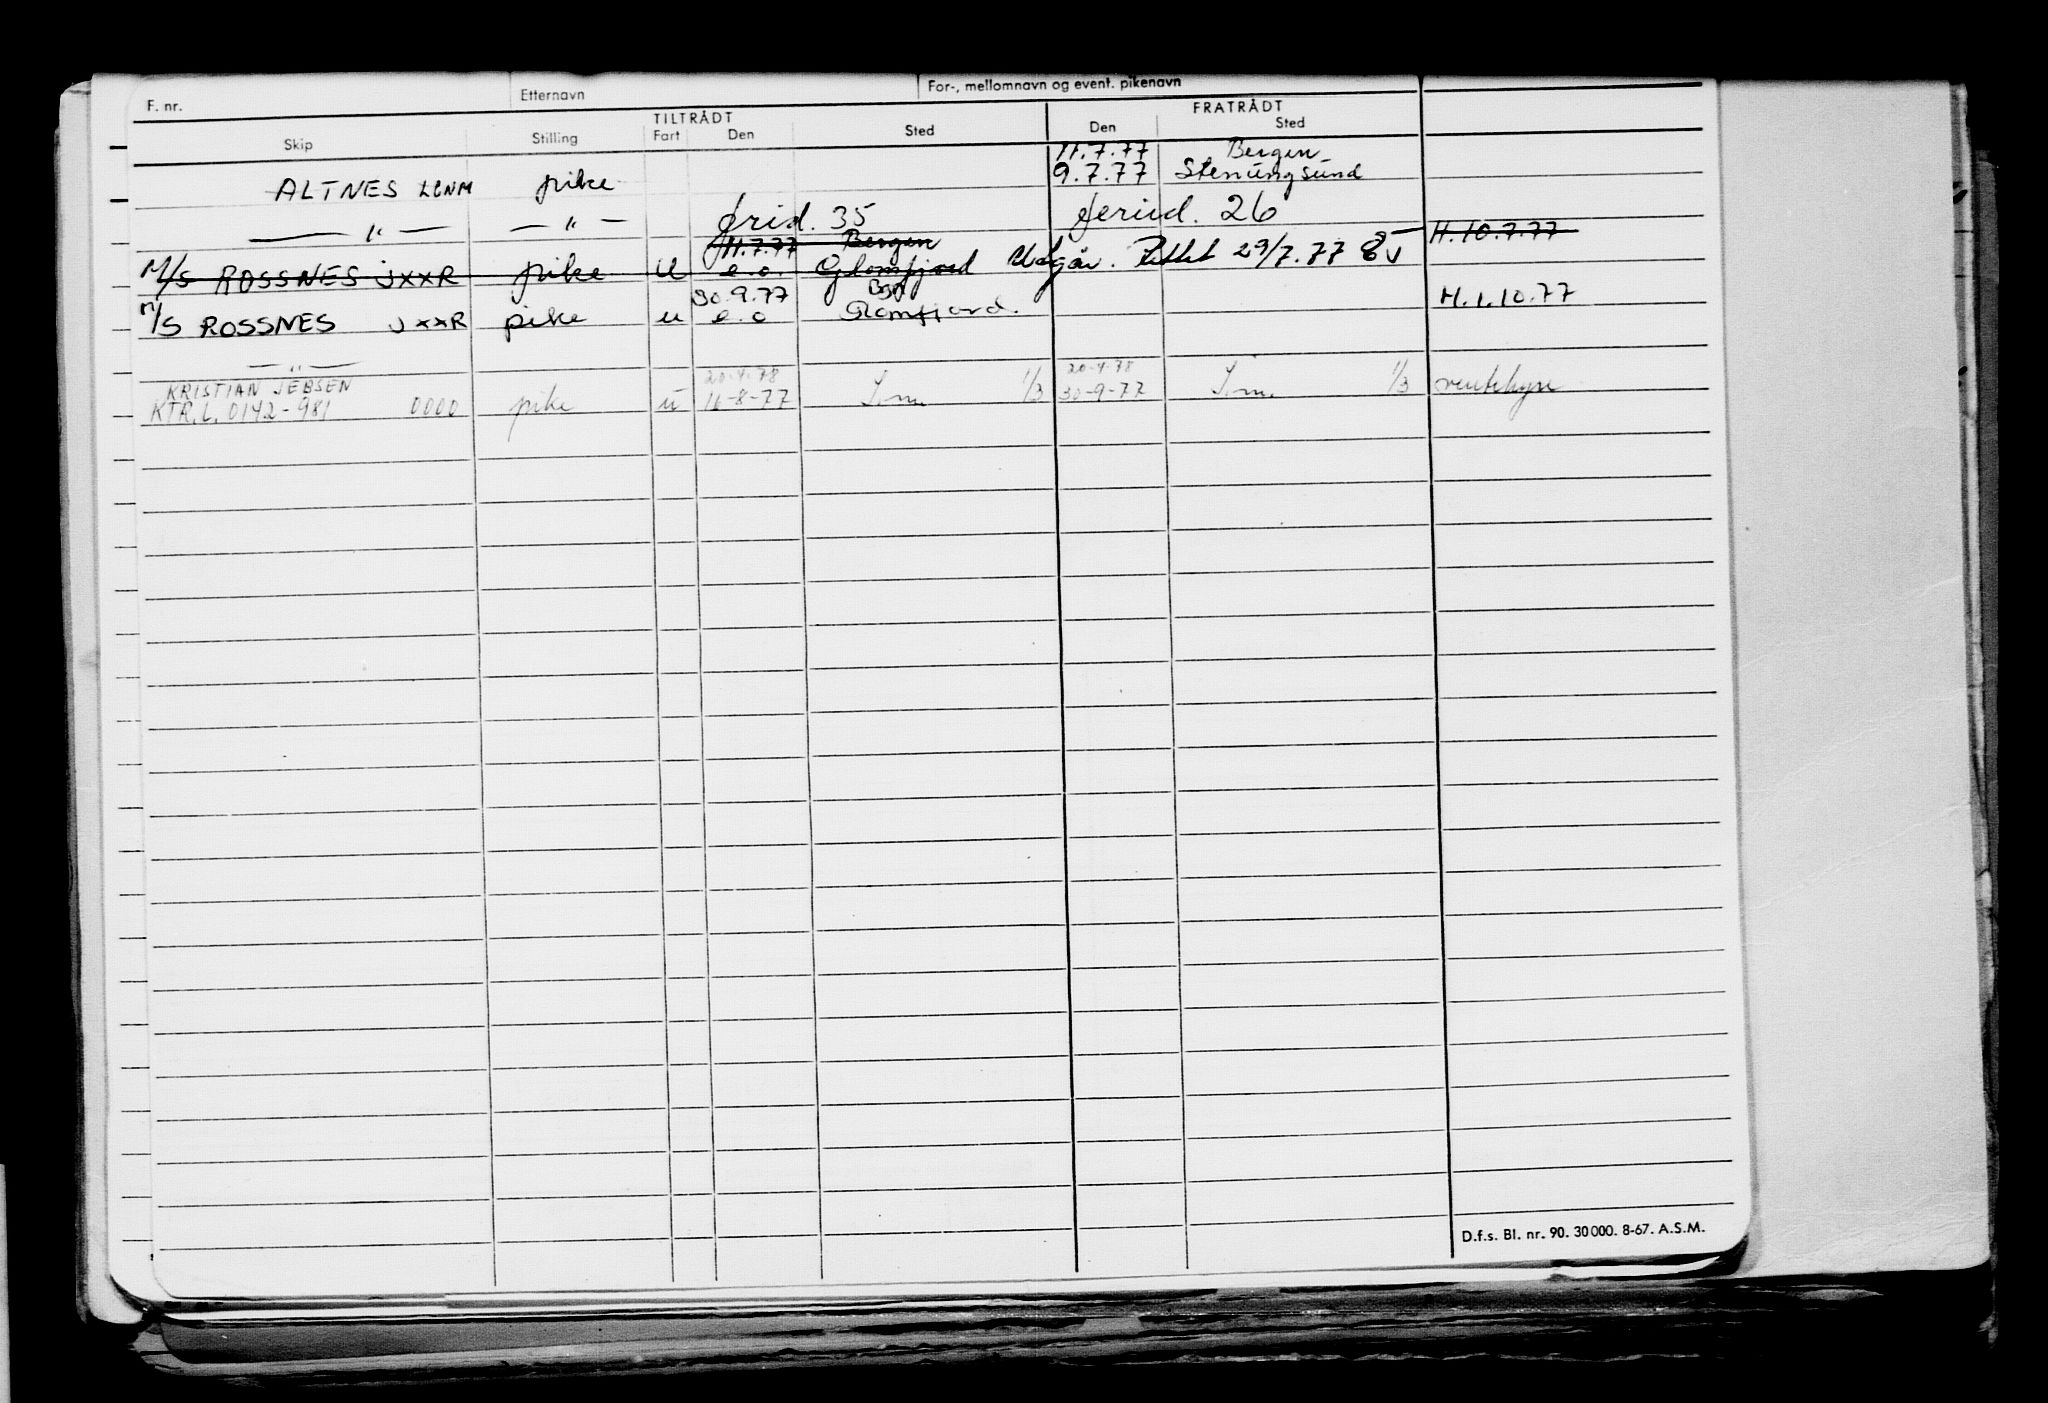 F. nr. Etternavn For-, mellomnavn og event. pikenavn
TILTRÅDT FRATRÅDT
Skip Stilling Fart Den Sted Den Sted
11.7.77 Bergen
ALTNES LCNM pike 9.7.77 Stenungsund
— " — — " — frid. 35 feriid. 26
11.7.77 Bergen H.10.7.77
M/S ROSSNES JXXR pike U e.o. Glomfjord Utgår. 29/7.77
30.9.77 Bgn H.1.10.77
M/S ROSSNES JXXR pike u e.o Glomfjord.
— " —
KRISTIAN JEBSEN 20.4.78 20.4.78
KTR.L. 0142-981 0000 pike u 16-8-77 1/3 30-9-77 1/3 ventehyre
D.f.s. Bl. nr. 90. 30000. 8-67. A.S.M.